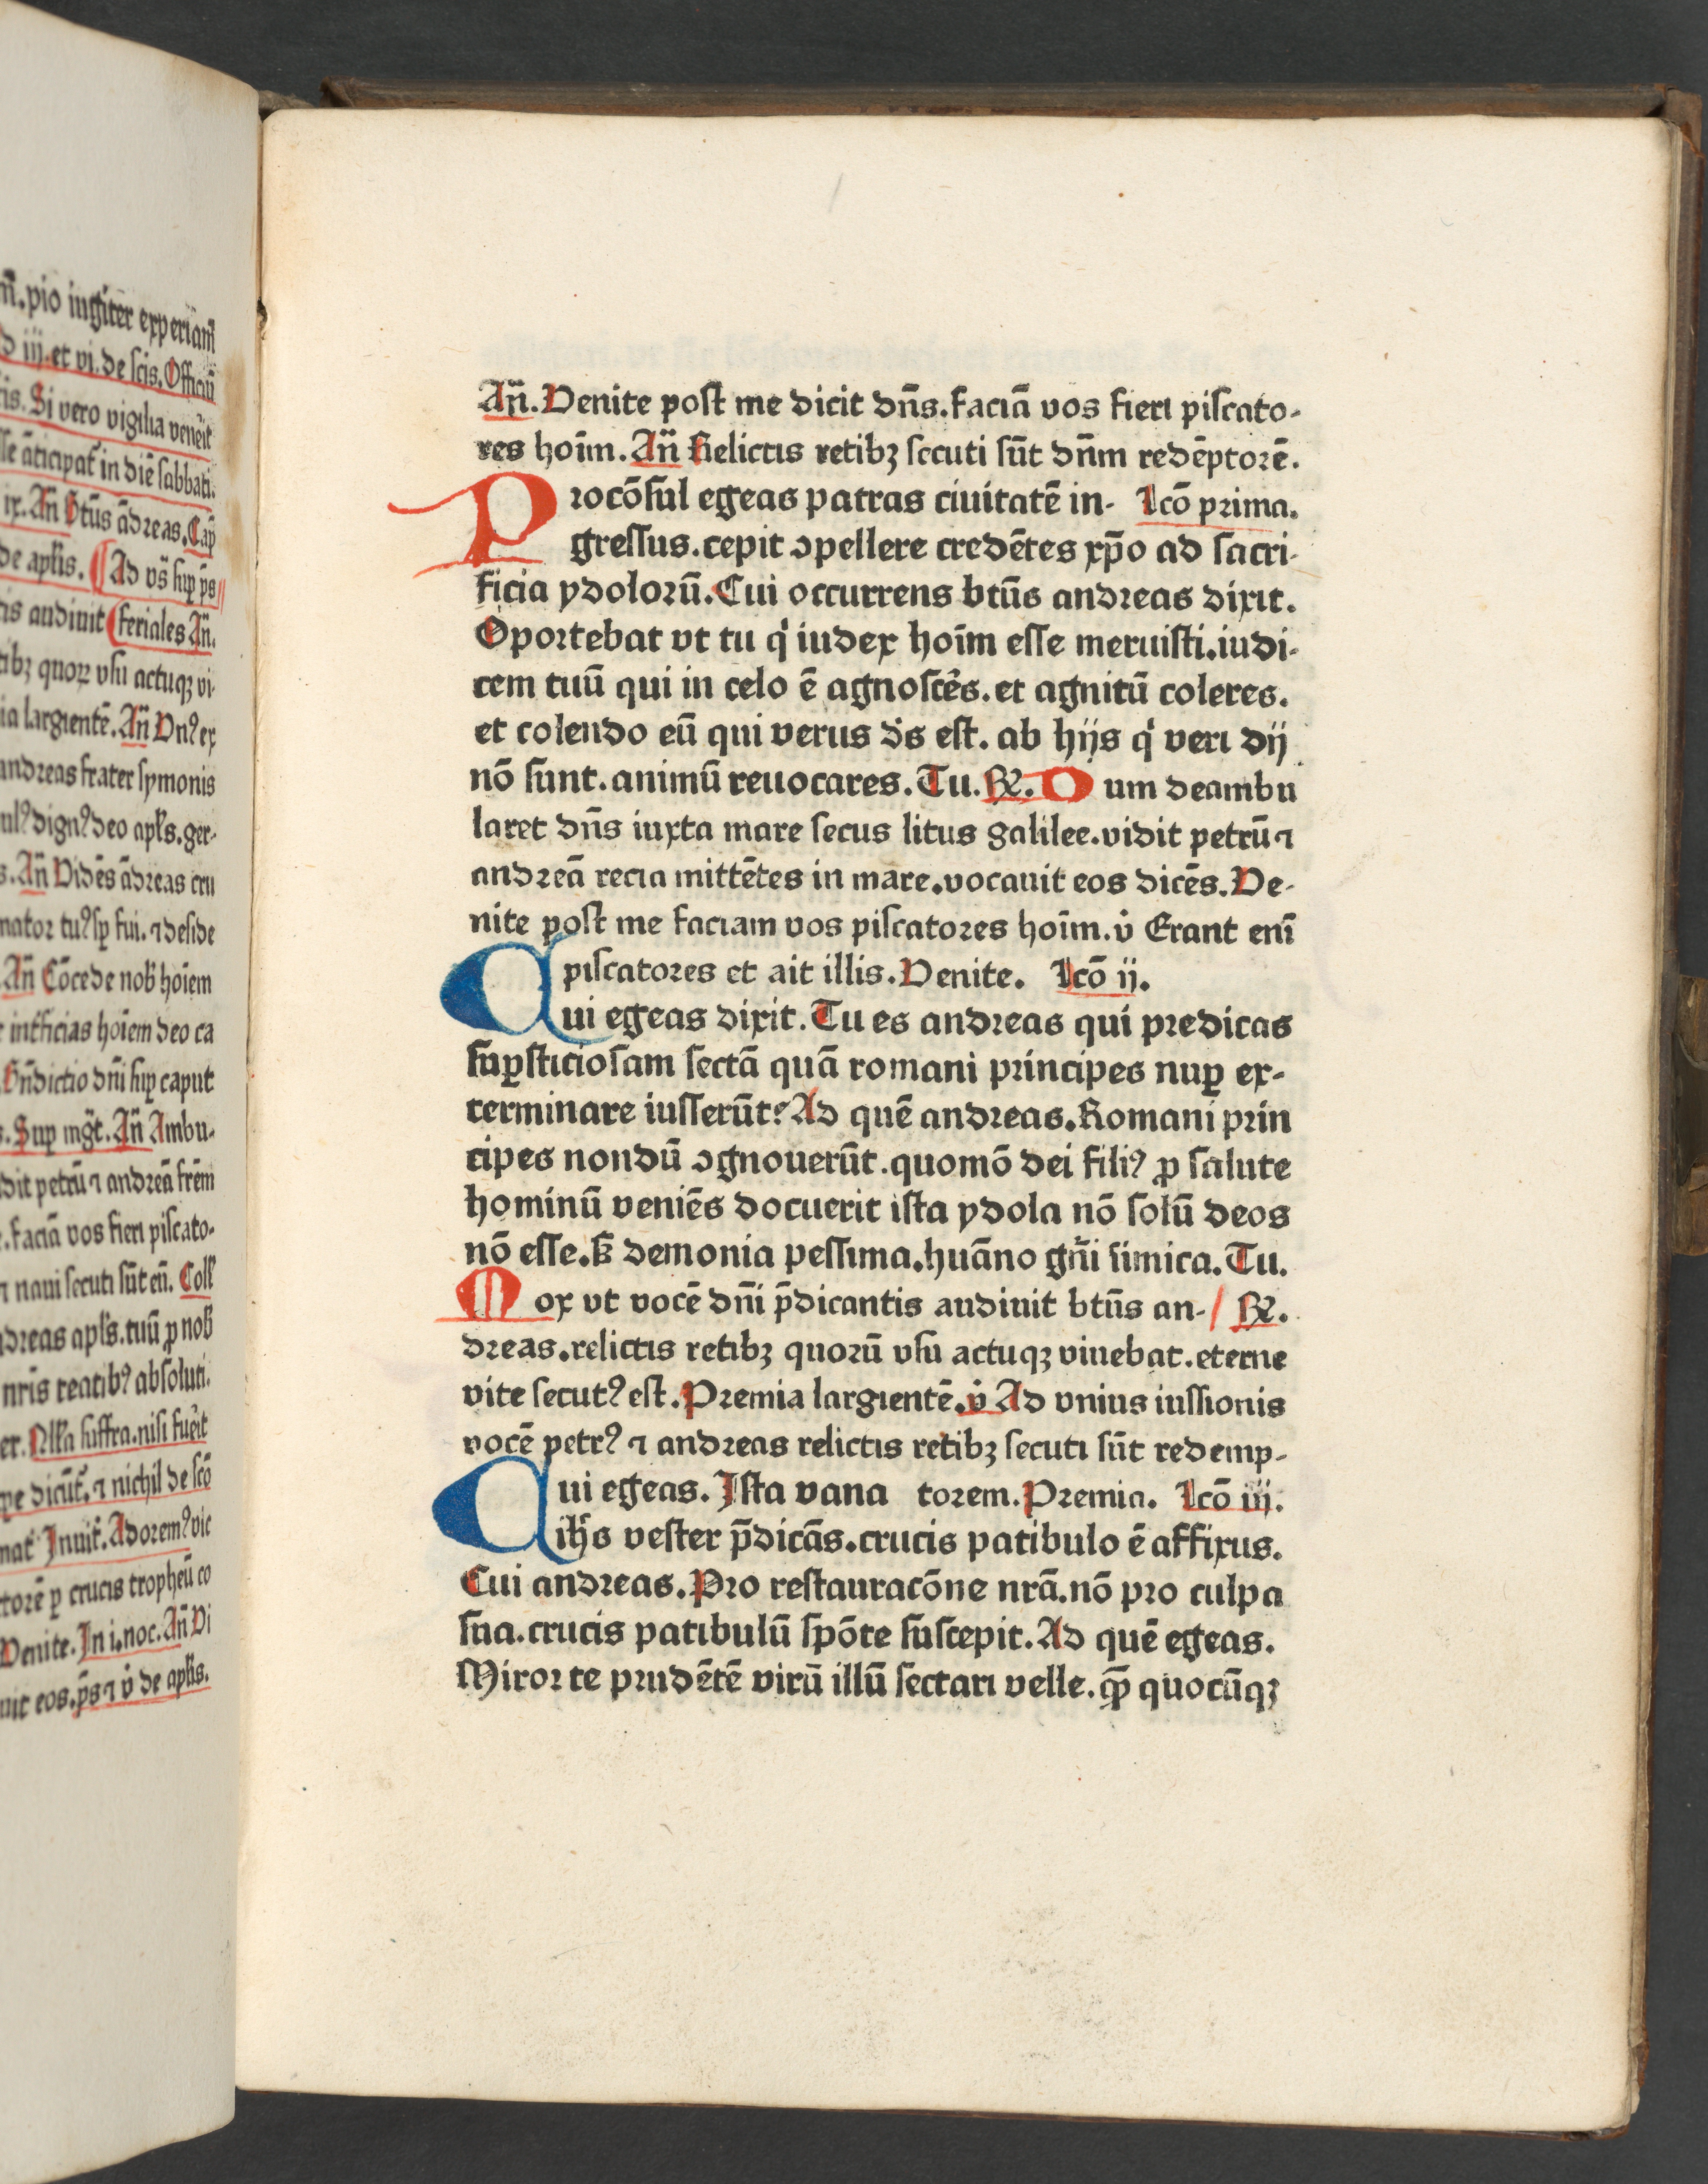 m̄.pio iugiter experiam̄
d iij.et vi.de scis.Officiū
cis.Si vero vigilia venēit
sse āticipat̄ in diē sabbati.
ix.An̄ btūs ādreas.Cap̄
de apl̄is. Ad vs̄ sup̲ p̄s
tis audiuit feriales An̄.
tibꝫ quoꝝ vsu actuqꝫ vi-
ia largientē.An̄ Dnꝰ ex
andreas frater symonis
ulꝰ dignꝰ deo apl̄s.ger-
s.An̄ Vidēs ādreas cru
mator tuꝰ sp̄ fui.⁊ deside
An̄ Cōcede nob̄ hoīem
intficias hoīem deo ca
Bn̄dictio dn̄i sup̲ caput
s.Sup mgt̄.An̄ Ambu-
dit petrū ⁊ andreā frēm
e.faciā vos fieri piscato-
⁊ naui secuti sūt eū. Coll̄
dreas apl̄s.tuū ꝓ nob̄
nrīs reatibꝰ absoluti.
er.Nll̄a suffra.nisi fuēit
pe dicūt̄.⁊ nichil de scō
nat̄ Inuit̄.Adoremꝰ vic
torē ꝑ crucis tropheū co
Venite.In i.noc.An̄ Vi
uit eos.p̄s ⁊ v̊ de apl̄is.
An̄.Venite post me dicit dn̄s.faciā vos fieri piscato-
res hoīm.An̄ Relictis retibꝫ secuti sūt dn̄m redēptorē.
Procōsul egeas patras ciuitatē in- Lcō prima.
gressus.cepit ↄpellere credētes xp̄o ad sacri-
ficia ydolorū.Cui occurrens btūs andreas dixit.
Oportebat vt tu qͥ iudex hoīm esse meruisti.iudi-
cem tuū qui in celo ē agnoscēs.et agnitū coleres.
et colendo eū qui verus ds̄ est.ab hijs qͥ veri dij
nō sunt.animū reuocares.Tu.℟.Dum deambu
laret dn̄s iuxta mare secus litus galilee.vidit petrū ⁊
andreā recia mittētes in mare.vocauit eos dicēs.Ve-
nite post me faciam vos piscatores hoīm.v̊ Erant enī
piscatores et ait illis.Venite. Lcō ij.
Cui egeas dixit.Tu es andreas qui predicas
suꝑsticiosam sectā quā romani principes nuꝑ ex-
terminare iusserūt? Ad quē andreas.Romani prin
cipes nondū ↄgnouerūt.quomō dei filiꝰ ꝓ salute
hominū veniēs docuerit ista ydola nō solū deos
nō esse.ẜ demonia pessima.huāno gn̄i iimica.Tu.
Mox vt vocē dn̄i p̄dicantis audiuit btūs an-/ ℟.
dreas.relictis retibꝫ quorū vsu actuqꝫ viuebat.eterne
vite secutꝰ est.Premia largientē.v̊ Ad vnius iussionis
vocē petrꝰ ⁊ andreas relictis retibꝫ secuti sūt redemp-
Cui egeas.Ista vana torem.Premia. Lcō iij.
ih̄s vester p̄dicās.crucis patibulo ē affixus.
Cui andreas.Pro restauracōne nrā.nō pro culpa
sua.crucis patibulū spōte suscepit.Ad quē egeas.
Miror te prudētē virū illū sectari velle.qꝫ quocūqꝫ